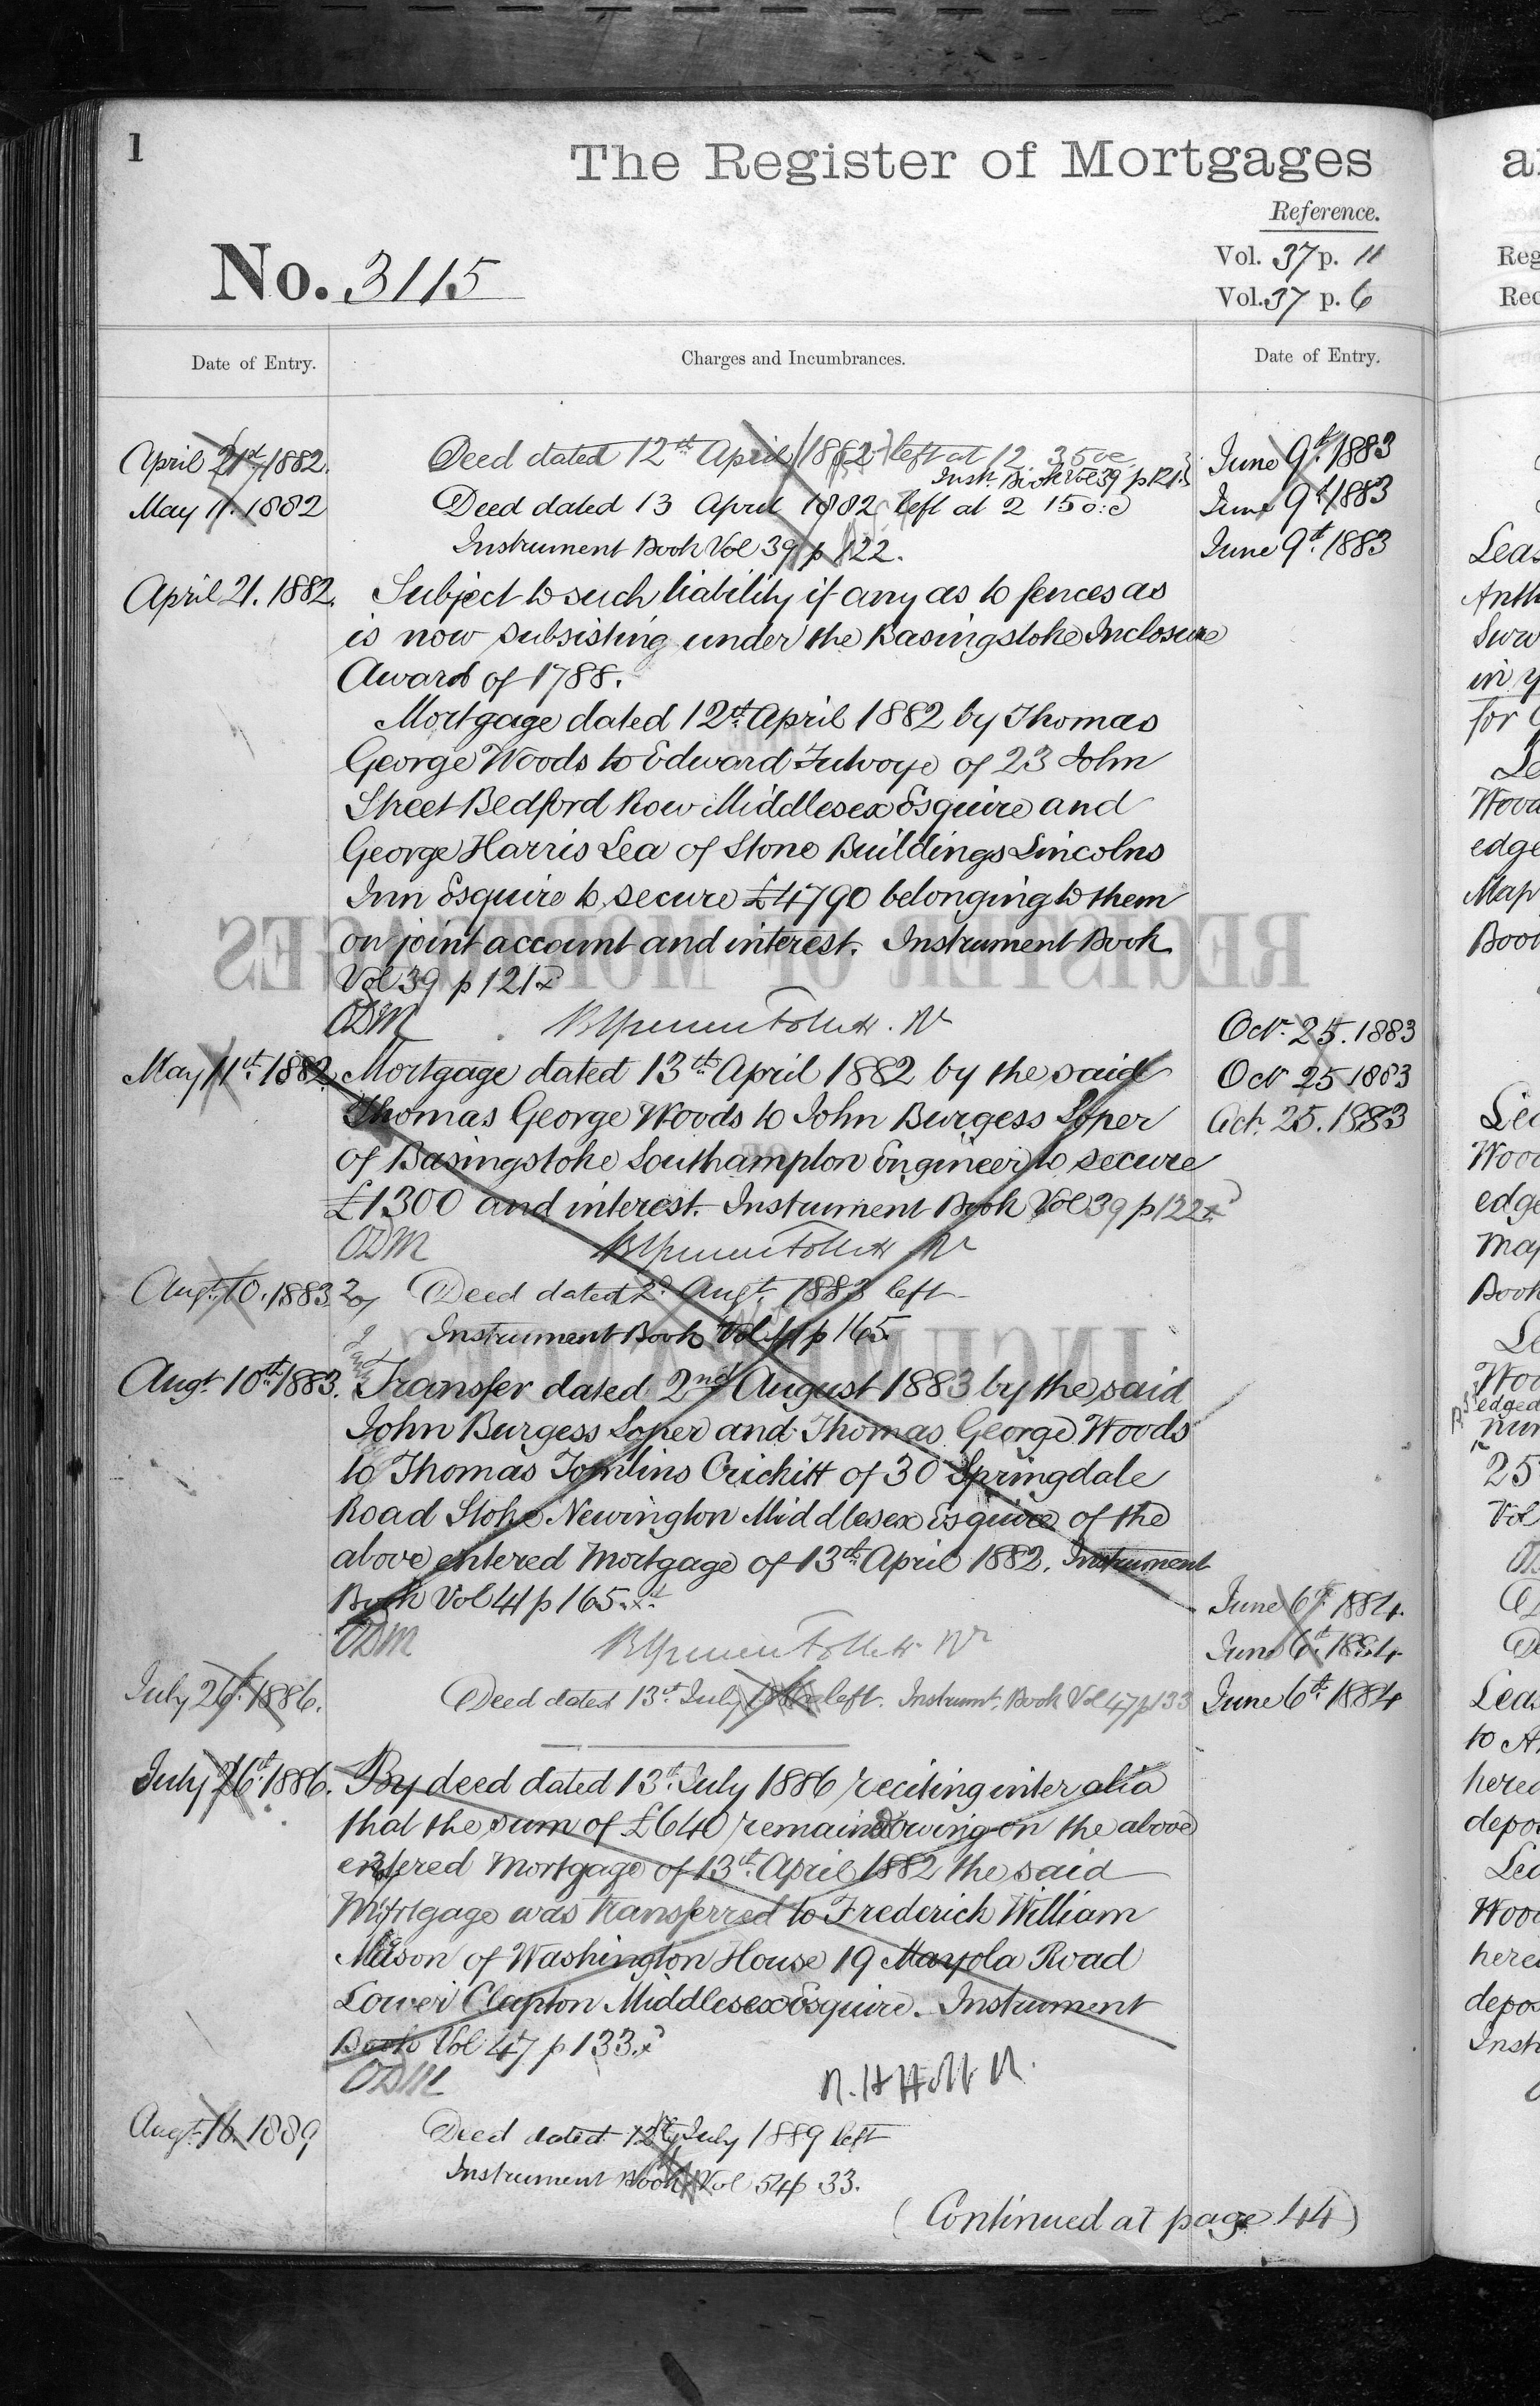 1
The Register of Mortgages
Reference.
No. 3115
Vol. 37 p. 11
Vol. 37 p. 6
Date of Entry.
Charges and Incumbrances.
Date of Entry.
April 21st 1882.
Deed dated 12th April 1882 left at 12 35
Inst. Book Vol 39 p 121
June 9th 1883
May 11. 1882
Deed dated 13 April 1882 left at 2 15
June 9th 1883
Instrument Book Vol 39 p 122.
June 9th 1883
April 21. 1882.
Subject to such liability if any as to fences as
is now subsisting under the Basingstoke Inclosure
Award of 1788.
Mortgage dated 12th April 1882 by Thomas
George Woods to Edward Fulvoye of 23 John
Street Bedford Row Middlesex Esquire and
George Harris Lea of Stone Buildings Lincolns
Inn Esquire to secure £4790 belonging to them
on joint account and interest. Instrument Book
Vol 39 p 121
ODM
Oct. 25. 1883
May 11th 1882
Mortgage dated 13th April 1882 by the said
Oct 25 1883
Thomas George Woods to John Burgess Soper
Oct. 25. 1883
of Basingstoke Southampton Engineer to secure
£1300 and interest. Instrument Book Vol 39 p 122
ODM
Augt. 10. 1883
Deed dated 2d Augt. 1883 left
Instrument Book Vol 41 p 165
Augt. 10th 1883.
Transfer dated 2nd August 1883 by the said
John Burgess Soper and Thomas George Woods
to Thomas Tomlins Crichitt of 30 Springdale
Road Stoke Newington Middlesex Esquire of the
above entered Mortgage of 13th April 1882. Instrument
Book Vol 41 p 165
June 6th 1884.
ODM
June 6th 1884
July 26th 1886.
Deed dated 13th July 1886 left. Instrumt. Book Vol 47 p 133
June 6th 1884
July 26th 1886.
By deed dated 13th July 1886 reciting inter alia
that the sum of £640 remained owing on the above
entered Mortgage of 13th April 1882 the said
Mortgage was transferred to Frederick William
Mason of Washington House 19 Mayola Road
Lower Clapton Middlesex Esquire. Instrument
Book Vol 47 p 133
ODM
Augt. 16. 1889
Deed dated 12th July 1889 left
Instrument Book Vol 54 p 33.
(Continued at page 44)